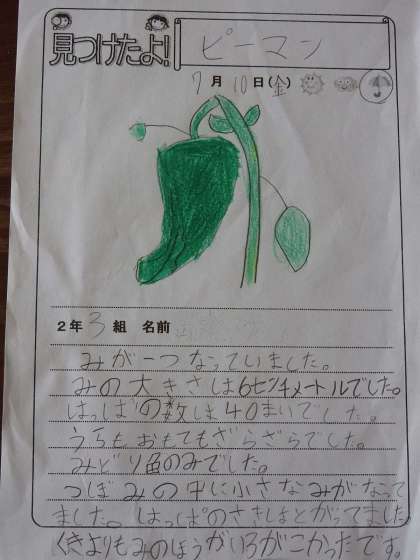 見つけたよ!
ピーマン
7月10日(金)
2年3組 名前
みが一つなっていました。
みの大きさは6センチメートルでした。
はっぱの数は40まいでした。
うらもおもてもざらざらでした。
みどり色のみでした。
つぼみの中に小さなみがなって
ました。はっぱのさきはとがってました
くきよりもみのほうがいろがこかったです